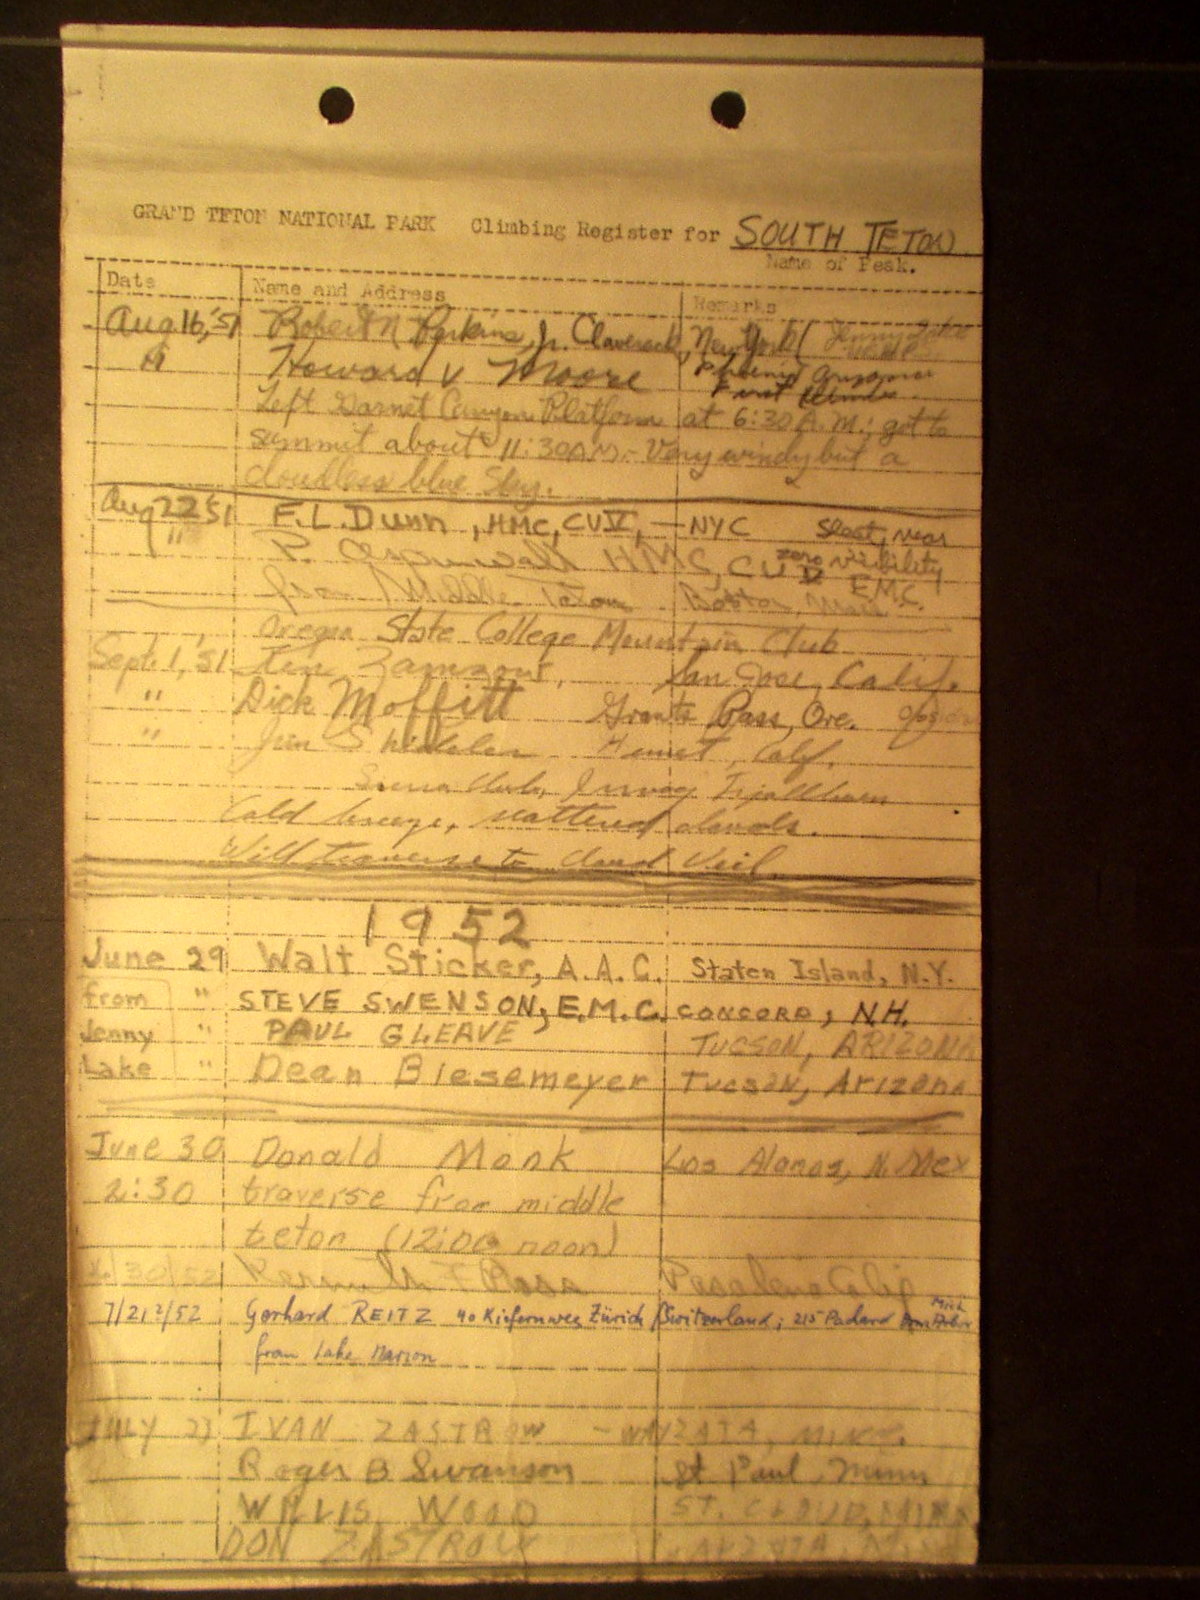 GRAND TETON NATIONAL PARK Climbing Register for SOUTH TETON
Name of Peak.
Date Name and Address Remarks
Aug 16, '51 Robert N Perkins, Jr. Claverack, New York Jenny Lake
" Howard V Moore Phoenix Arizona
First
Left Garnet Canyon Platform at 6:30 A.M.; got to
summit about 11:30 A.M. - Very windy but a
cloudless blue sky.
Aug 22 '51 E.L. Dunn, HMC, CUV, — NYC Sleet, near
" P. Aspinwall HMC, CUV zero visibility
EMC.
from Middle Teton Boston, Mass
Oregon State College Mountain Club
Sept. 1, '51 Ken San Jose, Calif.
" Dick Moffitt Grants Pass, Ore.
" Jim Hemet, Calif.
Sierra Club, Irving
Cold breeze, scattered clouds.
Will traverse to Cloud Veil.
1952
June 29 Walt Sticker, A.A.C. Staten Island, N.Y.
from " STEVE SWENSON, E.M.C. CONCORD, N.H.
Jenny " PAUL GLEAVE TUCSON, ARIZONA
Lake " Dean Biesemeyer Tucson, Arizona
June 30 Donald Monk Los Alamos, N. Mex
2:30 traverse from middle
teton (12:00 noon)
6/30/52 F Ross Pasadena Calif
7/21/52 Gerhard REITZ 40 Kiefernweg Zürich / Switzerland; 215 Packard Ann Arbor Mich
from Lake Marion
JULY 23 IVAN ZASTROW - WAYZATA, MINN.
Roger B Swanson St Paul, Minn
WILLIS WOOD ST. CLOUD, MINN
DON ZASTROW WAYZATA, MINN